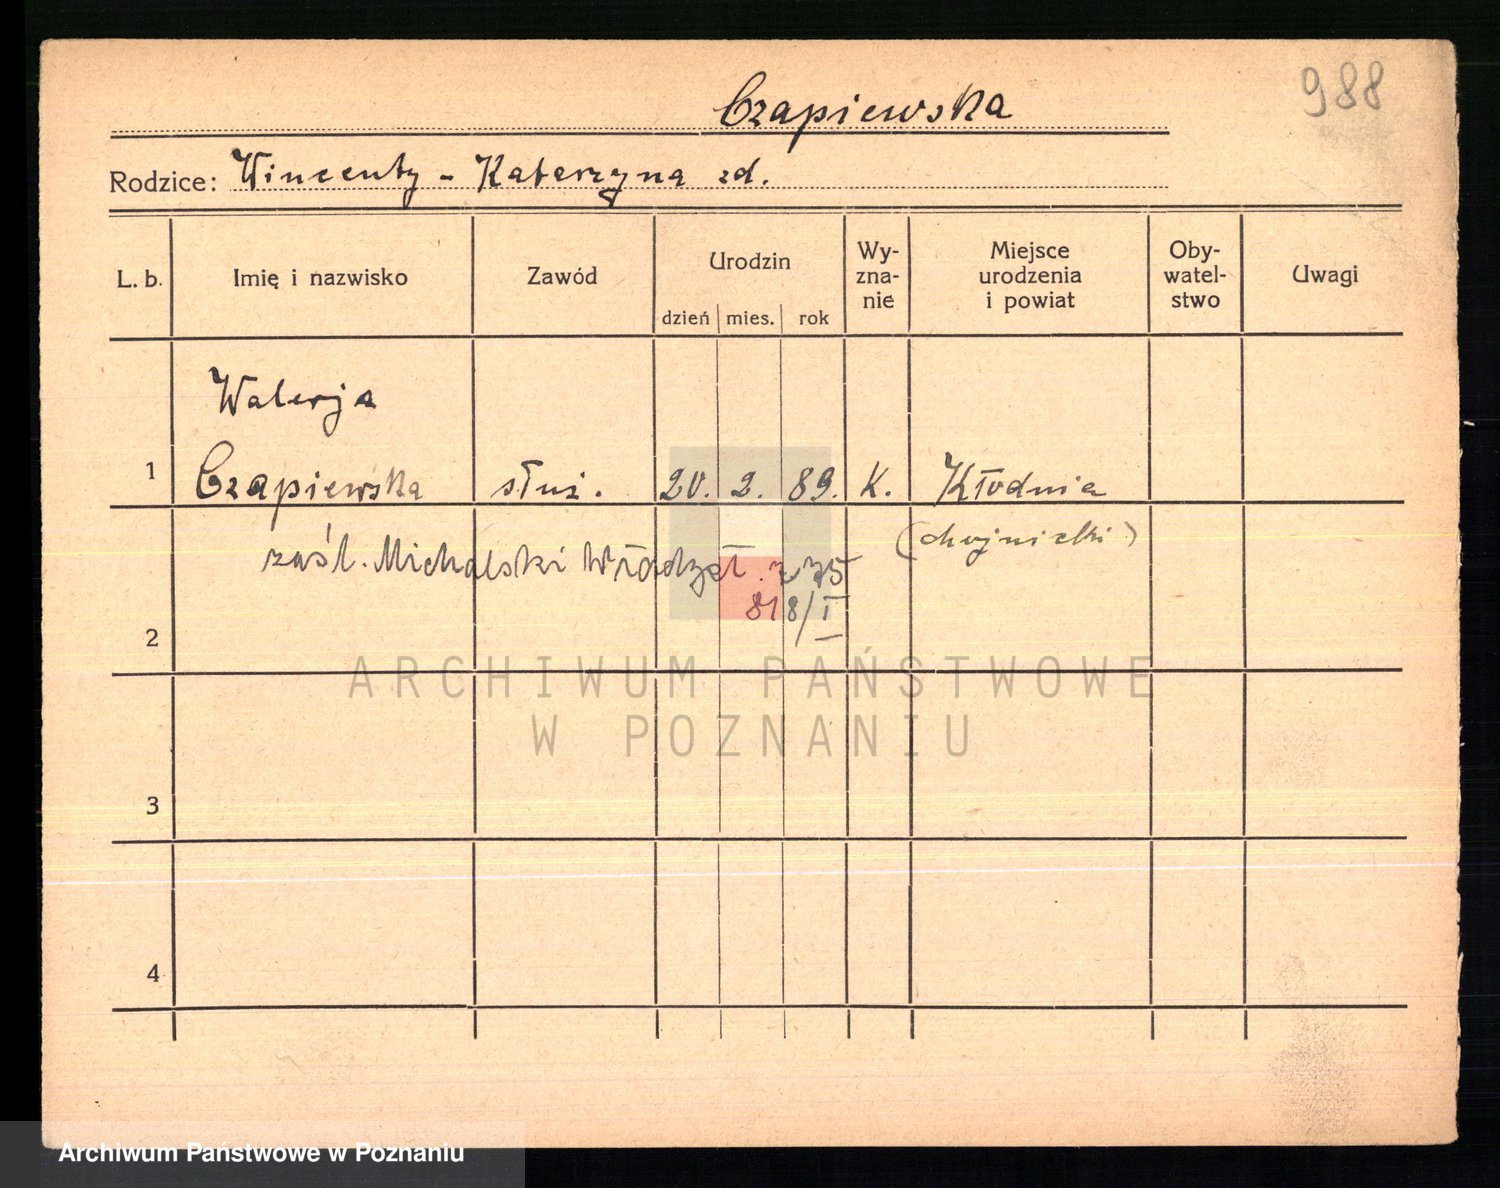 988
Czapiewska
Rodzice: Wincenty - Katarzyna zd.
L. b. Imię i nazwisko Zawód Urodzin dzień mies. rok Wy-zna-nie Miejsce urodzenia i powiat Oby-watel-stwo Uwagi
Walerja
1 Czapiewska służ. 20. 2. 89. K. Kłodnia
(chojnicki)
zaśl. Michalski Władysł.
818/I
2
ARCHIWUM PAŃSTWOWE
W POZNANIU
3
4
Archiwum Państwowe w Poznaniu